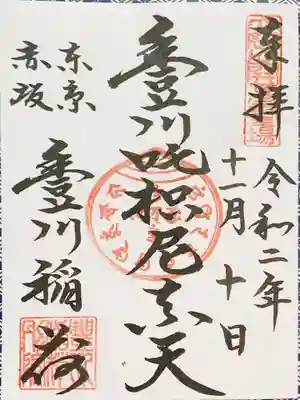 来拝
令和二年
十一月十日
豊川吒枳尼真天
東京
赤坂
豊川稲荷